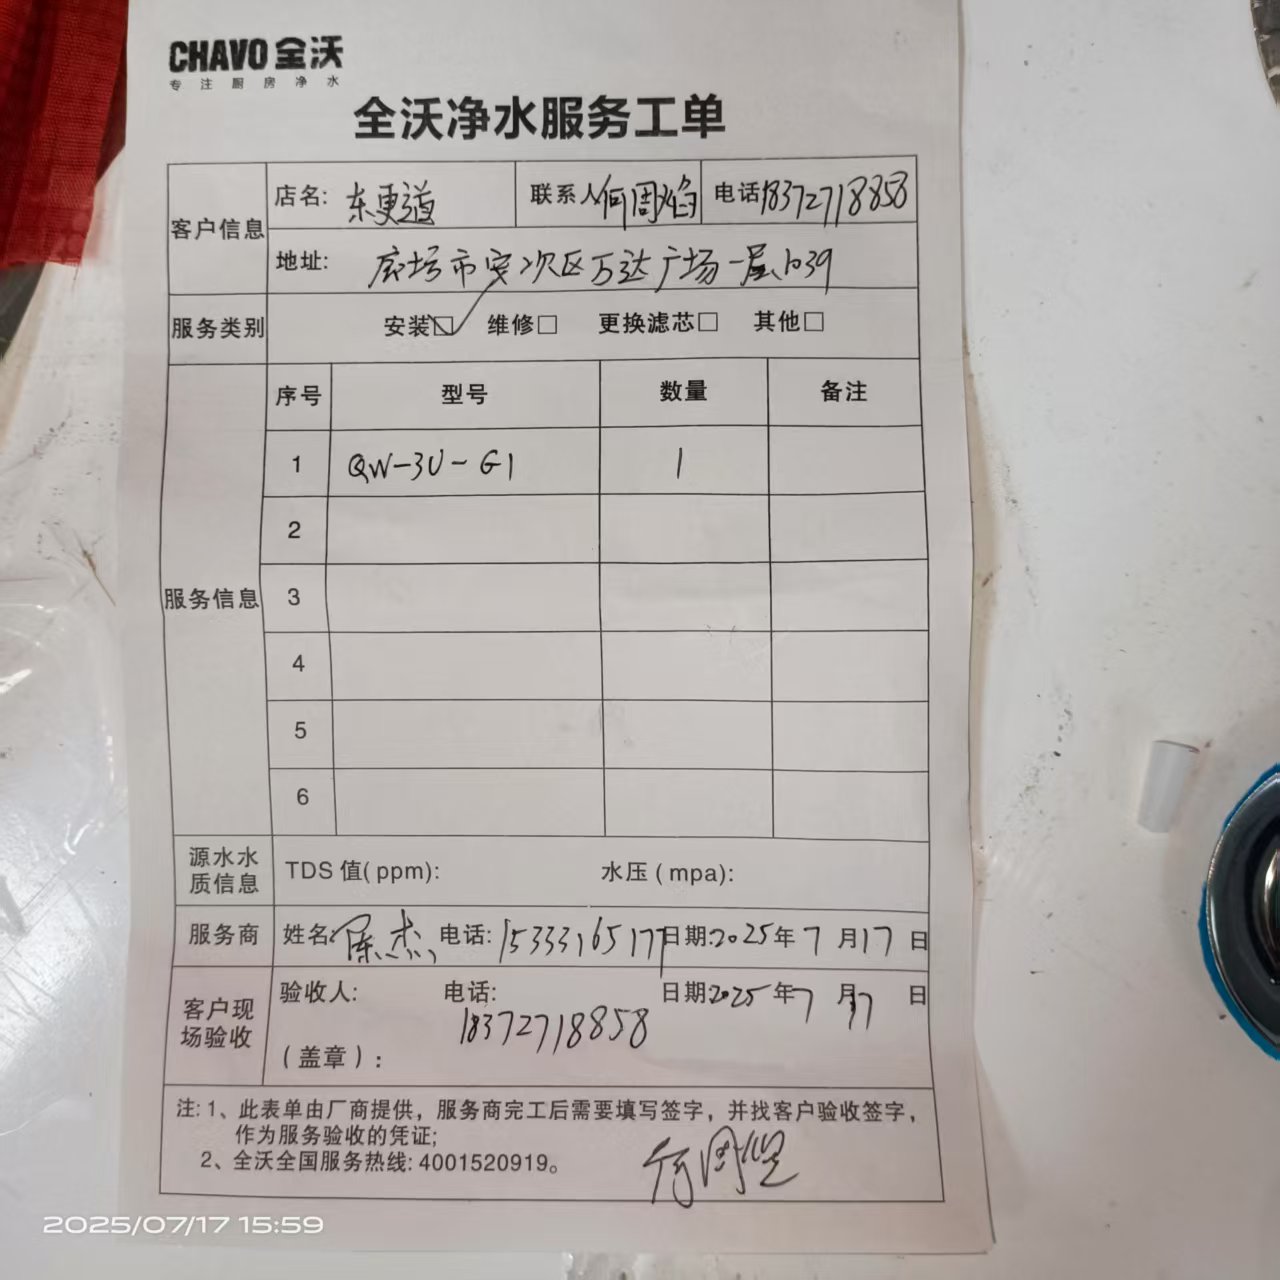 CHAVO 全沃
专注厨房净水
全沃净水服务工单
客户信息
店名: 东更道 联系人 何周焰 电话 18372718858
地址: 廊坊市安次区万达广场一层1039
服务类别 安装☑ 维修□ 更换滤芯□ 其他□
服务信息
序号 型号 数量 备注
1 QW-3U-G1 1
2
3
4
5
6
源水水质信息 TDS 值(ppm): 水压(mpa):
服务商 姓名: 陈杰 电话: 15333165177 日期: 2025年7月17日
客户现场验收 验收人: 电话: 日期2025年7月17日
18372718858
(盖章):
注: 1、此表单由厂商提供，服务商完工后需要填写签字，并找客户验收签字，
作为服务验收的凭证;
2、全沃全国服务热线: 4001520919。
何周
2025/07/17 15:59